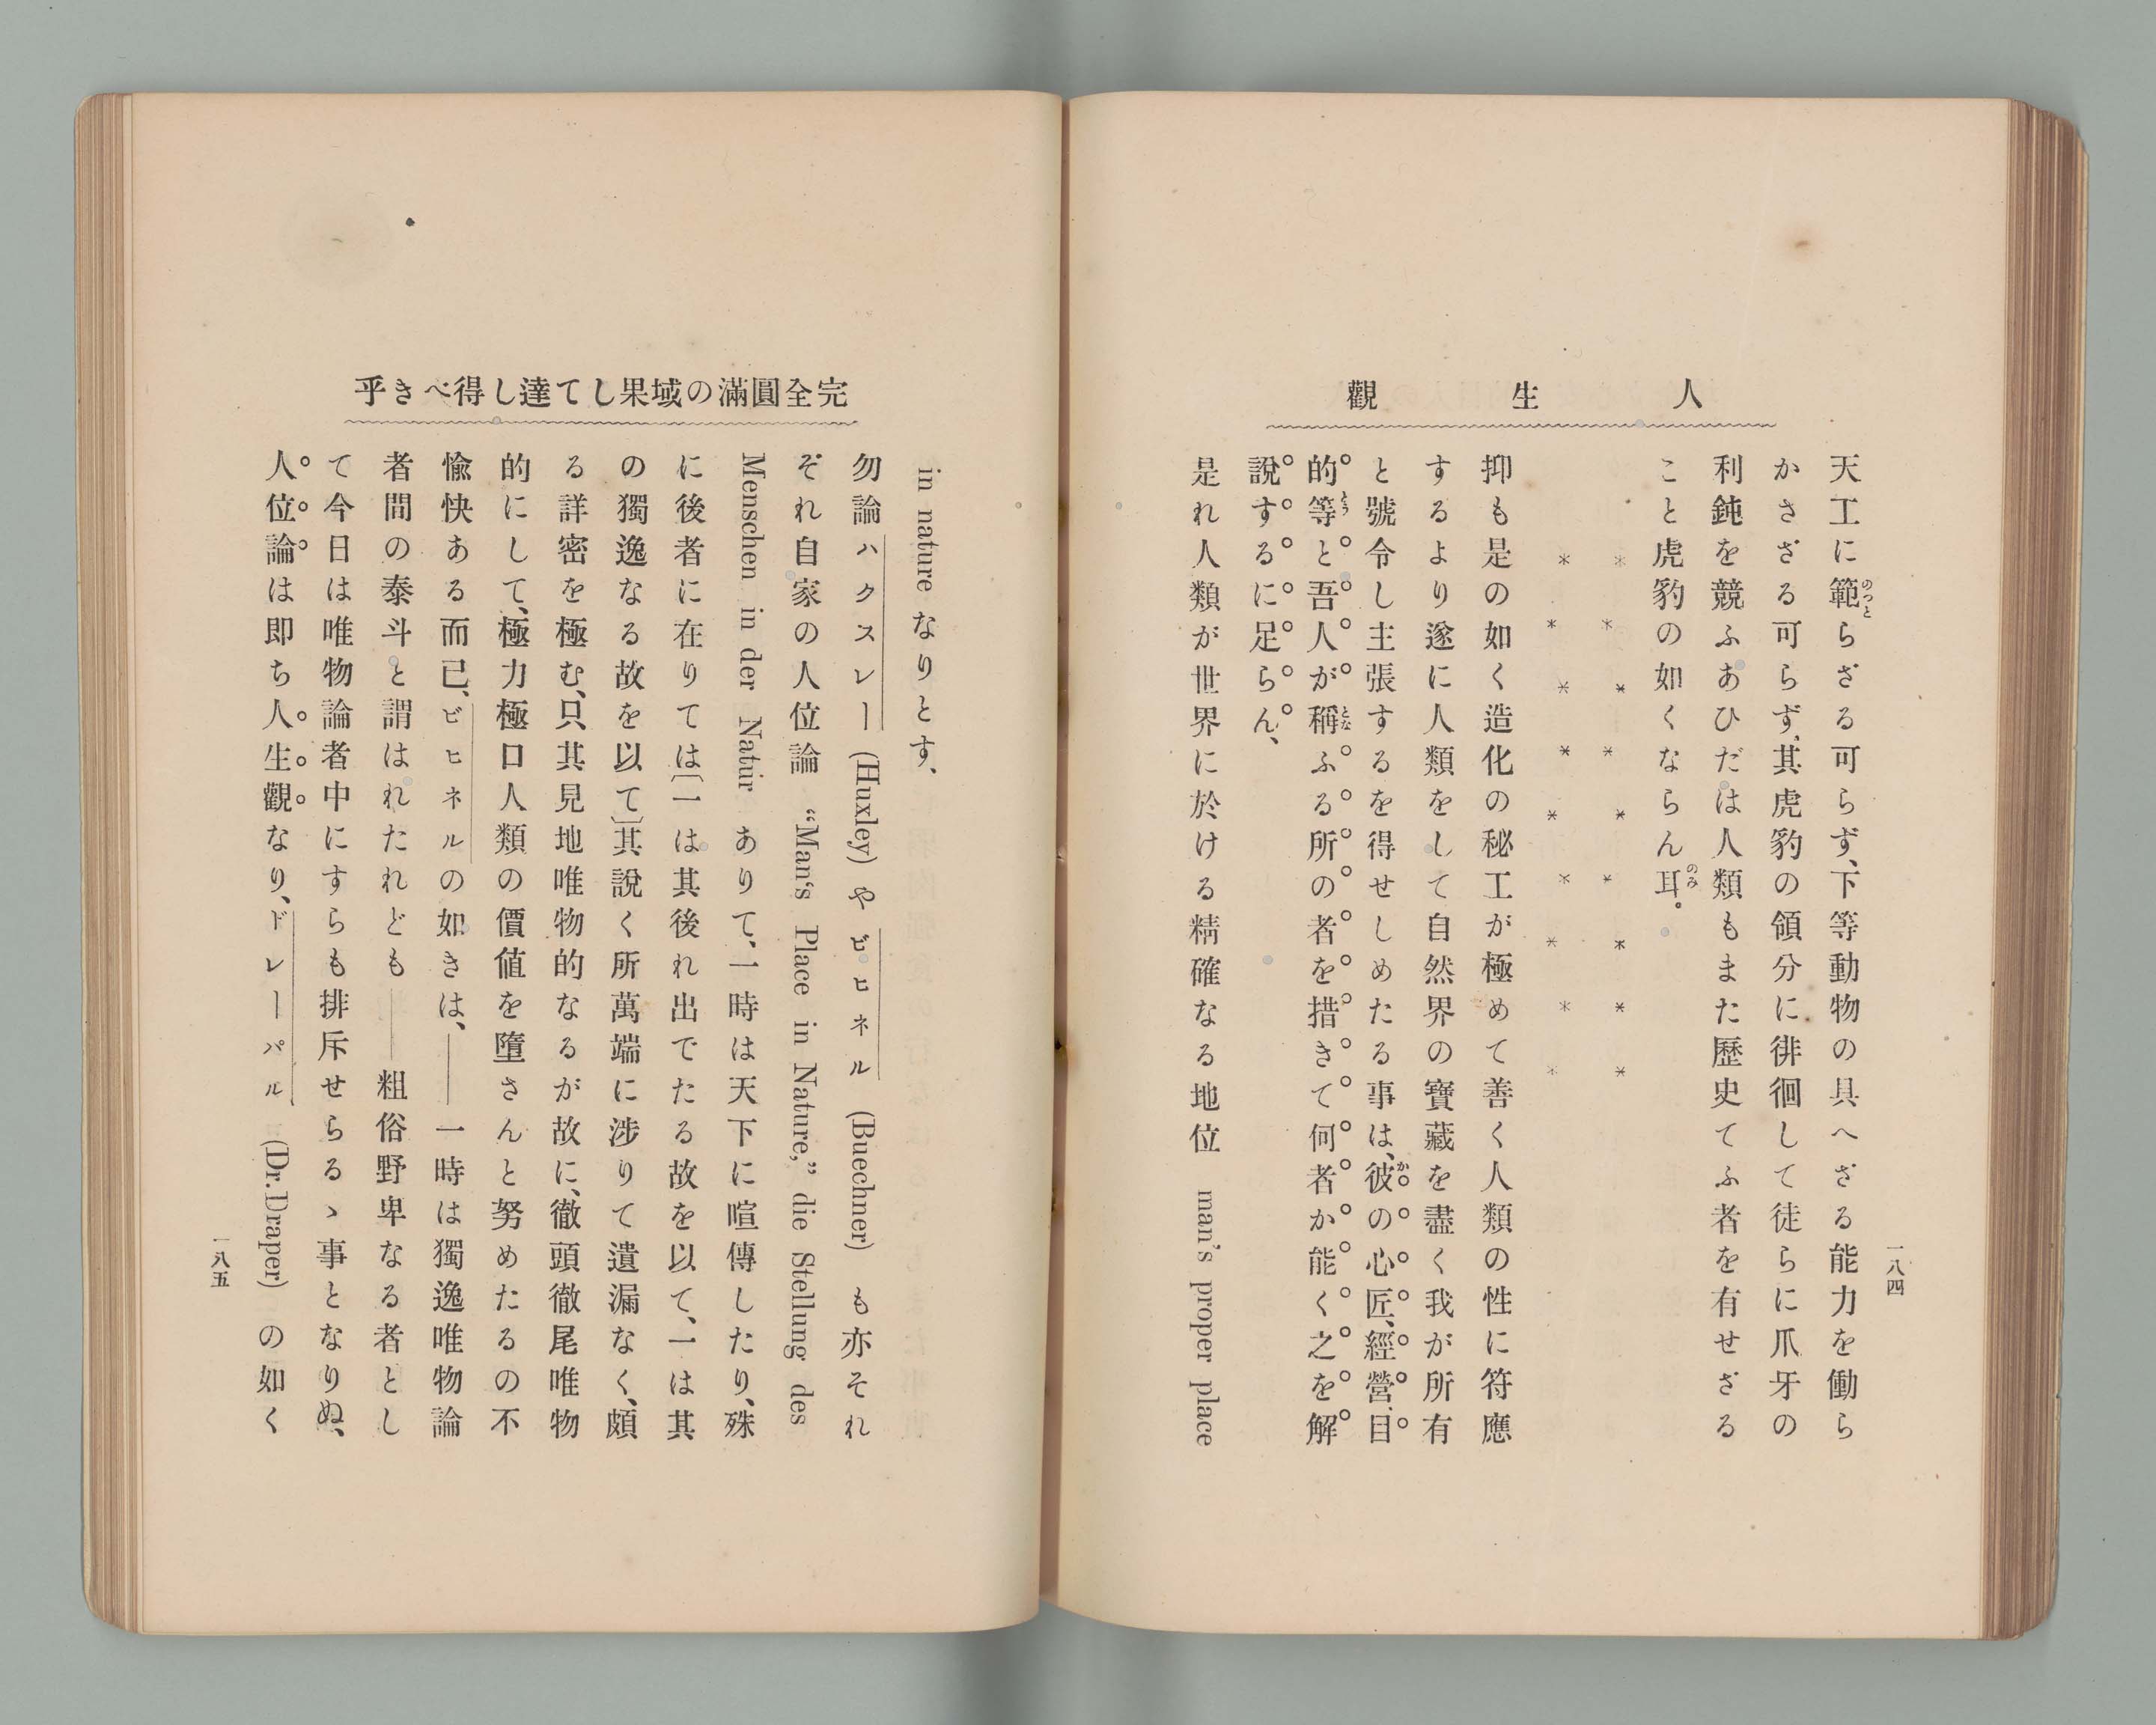 人生觀
一八四
天工に範らざる可らず、下等動物の具へざる能力を働ら
かさざる可らず、其虎豹の領分に徘徊して徒らに爪牙の
利鈍を競ふあひだは人類もまた歷史てふ者を有せざる
こと虎豹の如くならん耳。
* * * * * * * * *
* * * * * * * * *
抑も是の如く造化の秘工が極めて善く人類の性に符應
するより遂に人類をして自然界の寶藏を盡く我が所有
と號令し主張するを得せしめたる事は、彼の心匠、經營、目
的等と吾人が稱ふる所の者を措きて何者か能く之を解
說するに足らん、
是れ人類が世界に於ける精確なる地位 man's proper place
完全圓滿の域果して達し得べき乎
in nature なりとす、
勿論ハクスレー (Huxley) やビヒネル (Buechner) も亦それ
ぞれ自家の人位論 “Man's Place in Nature,” die Stellung des
Menschen in der Natur ありて、一時は天下に喧傳したり、殊
に後者に在りては〔一は其後れ出でたる故を以て、一は其
の獨逸なる故を以て〕其說く所萬端に涉りて遺漏なく、頗
る詳密を極む、只其見地唯物的なるが故に、徹頭徹尾唯物
的にして、極力極口人類の價値を墮さんと努めたるの不
愉快ある而已、ビヒネルの如きは、――一時は獨逸唯物論
者間の泰斗と謂はれたれども――粗俗野卑なる者とし
て今日は唯物論者中にすらも排斥せらるゝ事となりぬ、
人位論は即ち人生觀なり、ドレーパル (Dr. Draper) の如く
一八五